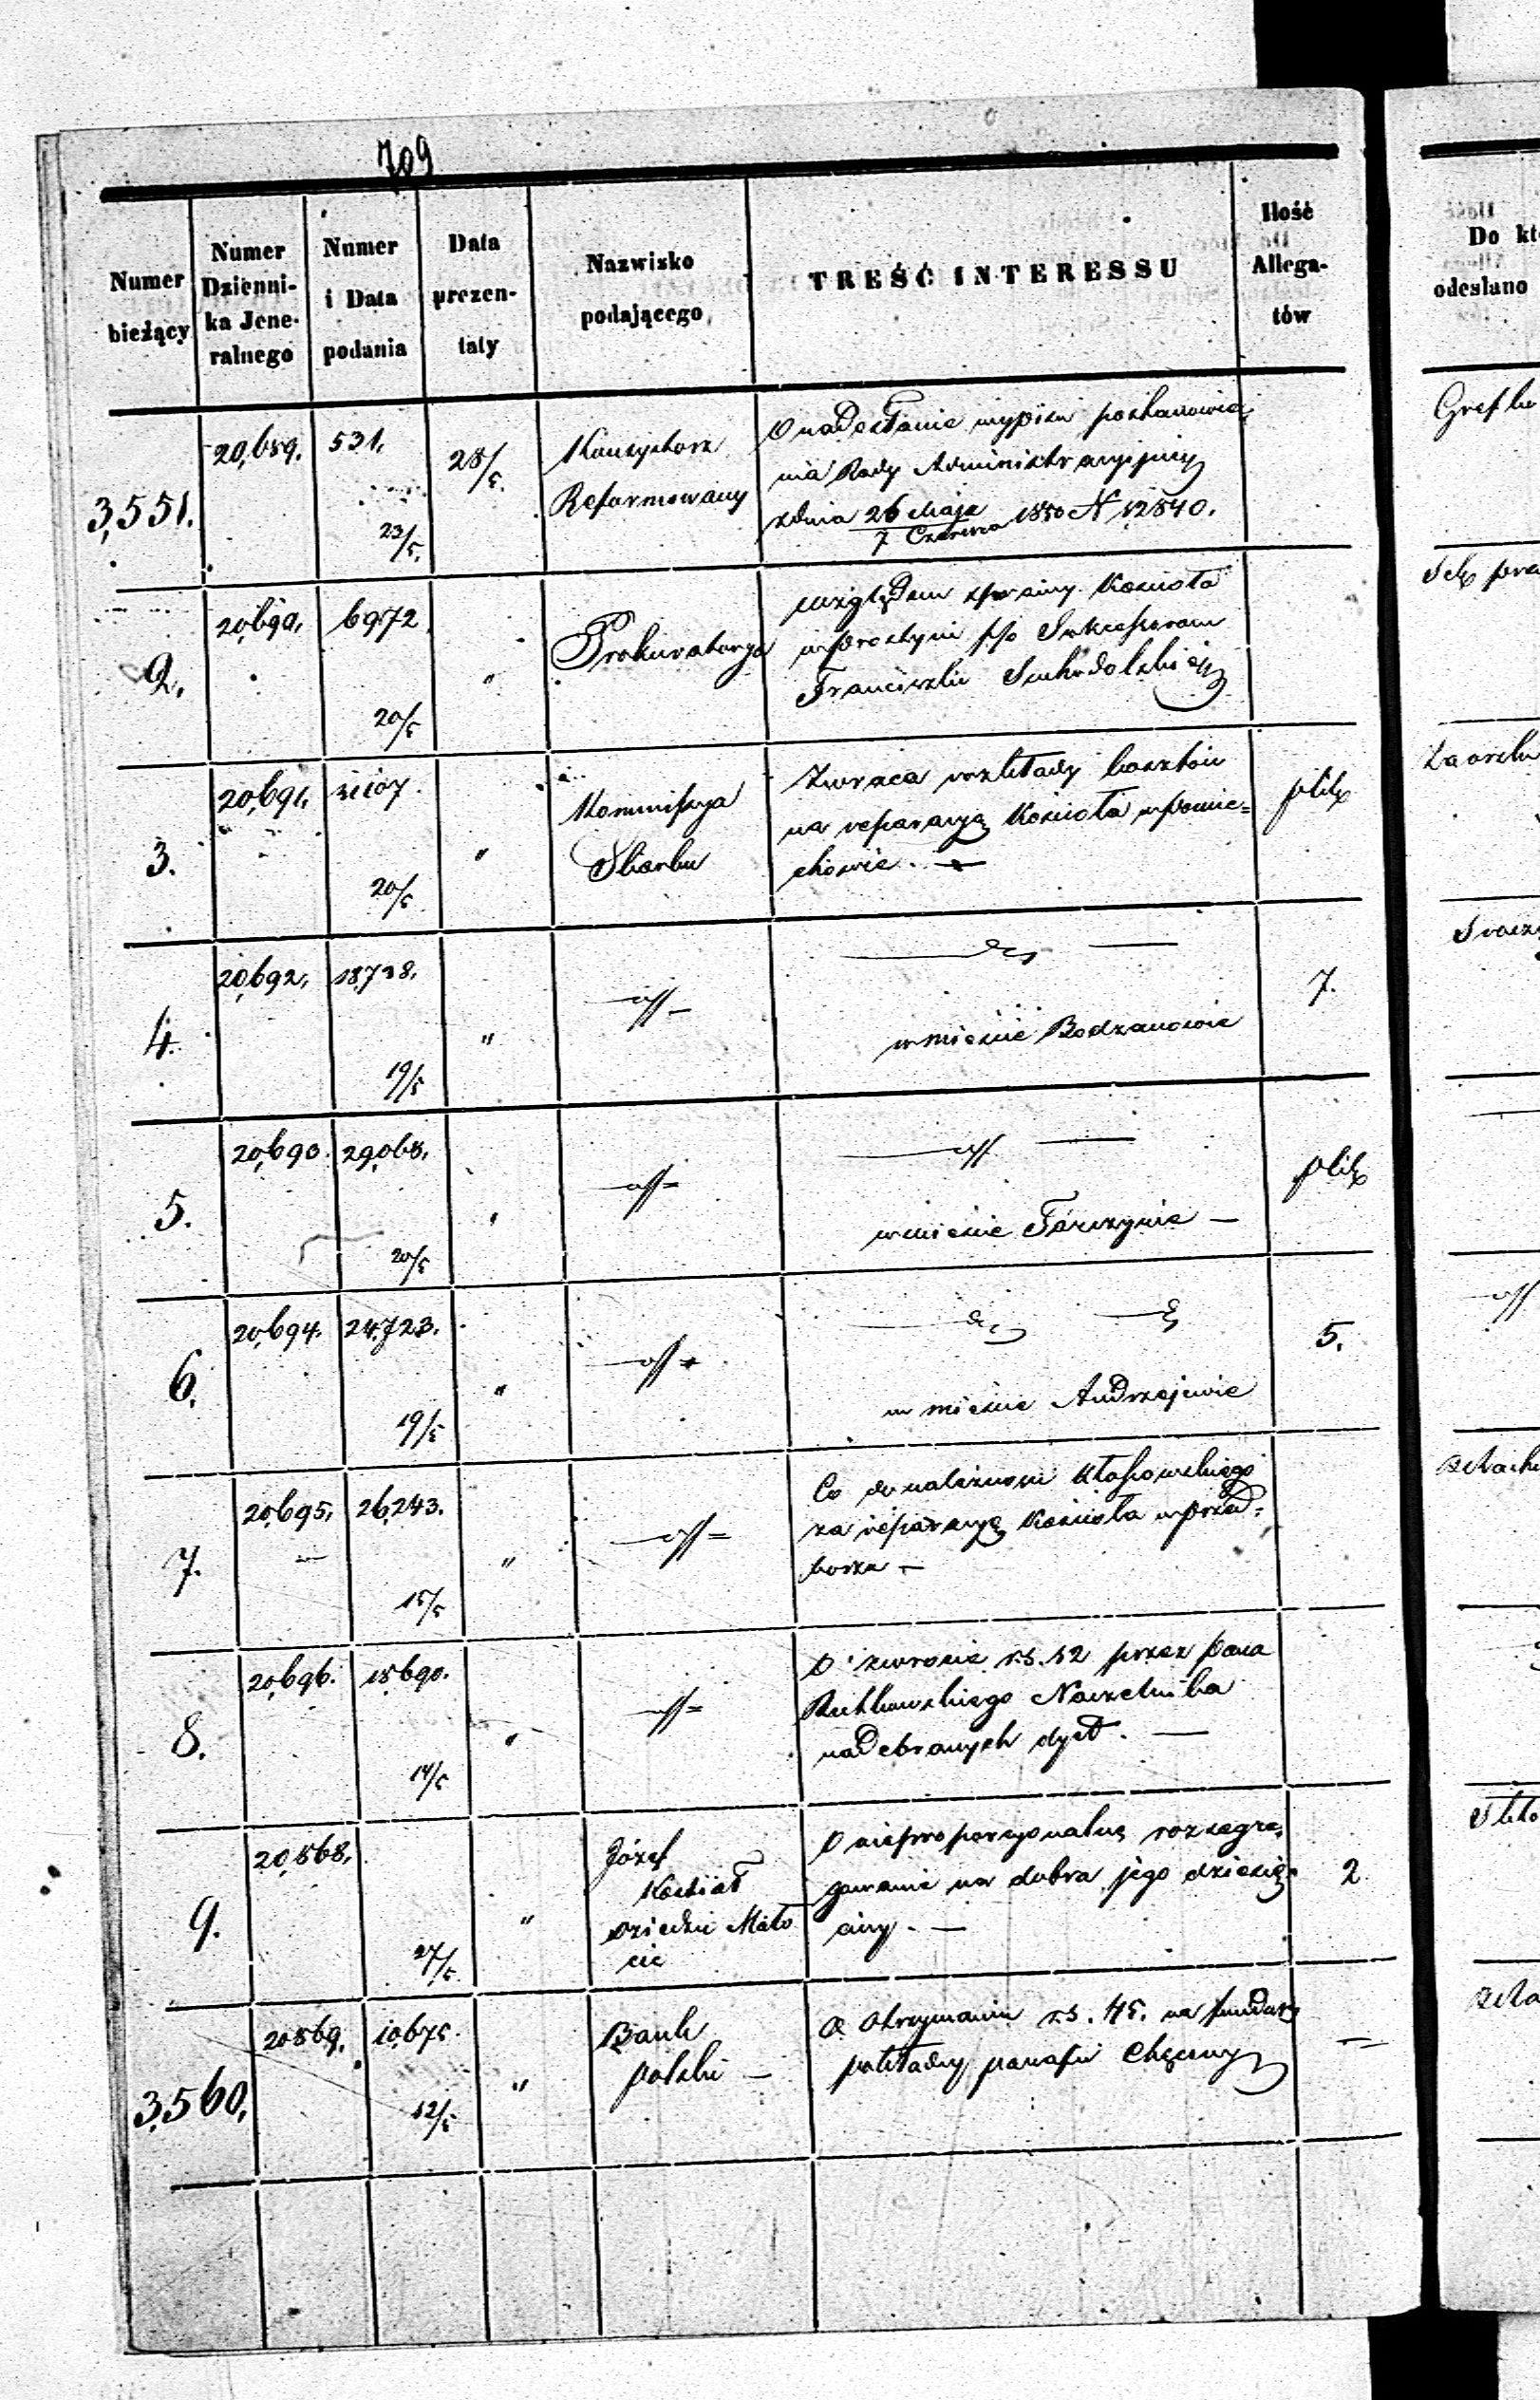 709
Numer bieżący
Numer Dzienni-ka Jene-ralnego
Numer i Data podania
Data prezen-taty
Nazwisko podającego
TREŚĆ INTERESSU
Ilość Allega-tów
Do kt
odesłano
3,551. 20,689. 531. 23/5. 28/5.
Konsystorz
Reformowany
O nadesłanie wypisu postanowie-
nia Rady Administracyjnej
z dnia 26 Maja / 7 Czerwca 1850 N 12840.
2. 20,690. 6972. 20/5 "
Prokuratorya
względem sprawy Kościoła
w Prostyni p/o Sukcessorom
Franciszki Suchodolskiej
3. 20,691. 20/5 "
Kommissya
Skarbu
Zwraca rozkłady kosztów
na reparacyą Kościoła w Pomie-
chowie. —
plik
4. 20,692. 18,738. 19/5 "
w mieście Bodzanowie
7.
5. 20,693. 29,068. 20/5 "
w mieście Tarczynie —
plik
6. 20,694. 24,723. 19/5 "
w mieście Andrzejewie
5.
7. 20,695. 26,243. 15/5 "
Co do należności
za reparacyą Kościoła w Przed-
borzu —
8. 20,696. 18,690. 14/5 "
O zwrocie rs. 12 przez Pana
Rutkowskiego Naczelnika
nadebranych dyet. —
9. 20,868. 27/5 "
Józef
O nieproporcyonalne rozsegre-
gowanie na dobra jego dziesię-
ciny. —
2
3,560. 20,869. 10,675. 12/5 "
Bank
polski —
O otrzymaniu rs. 45. na fundusz
pokładny parafii Chęciny